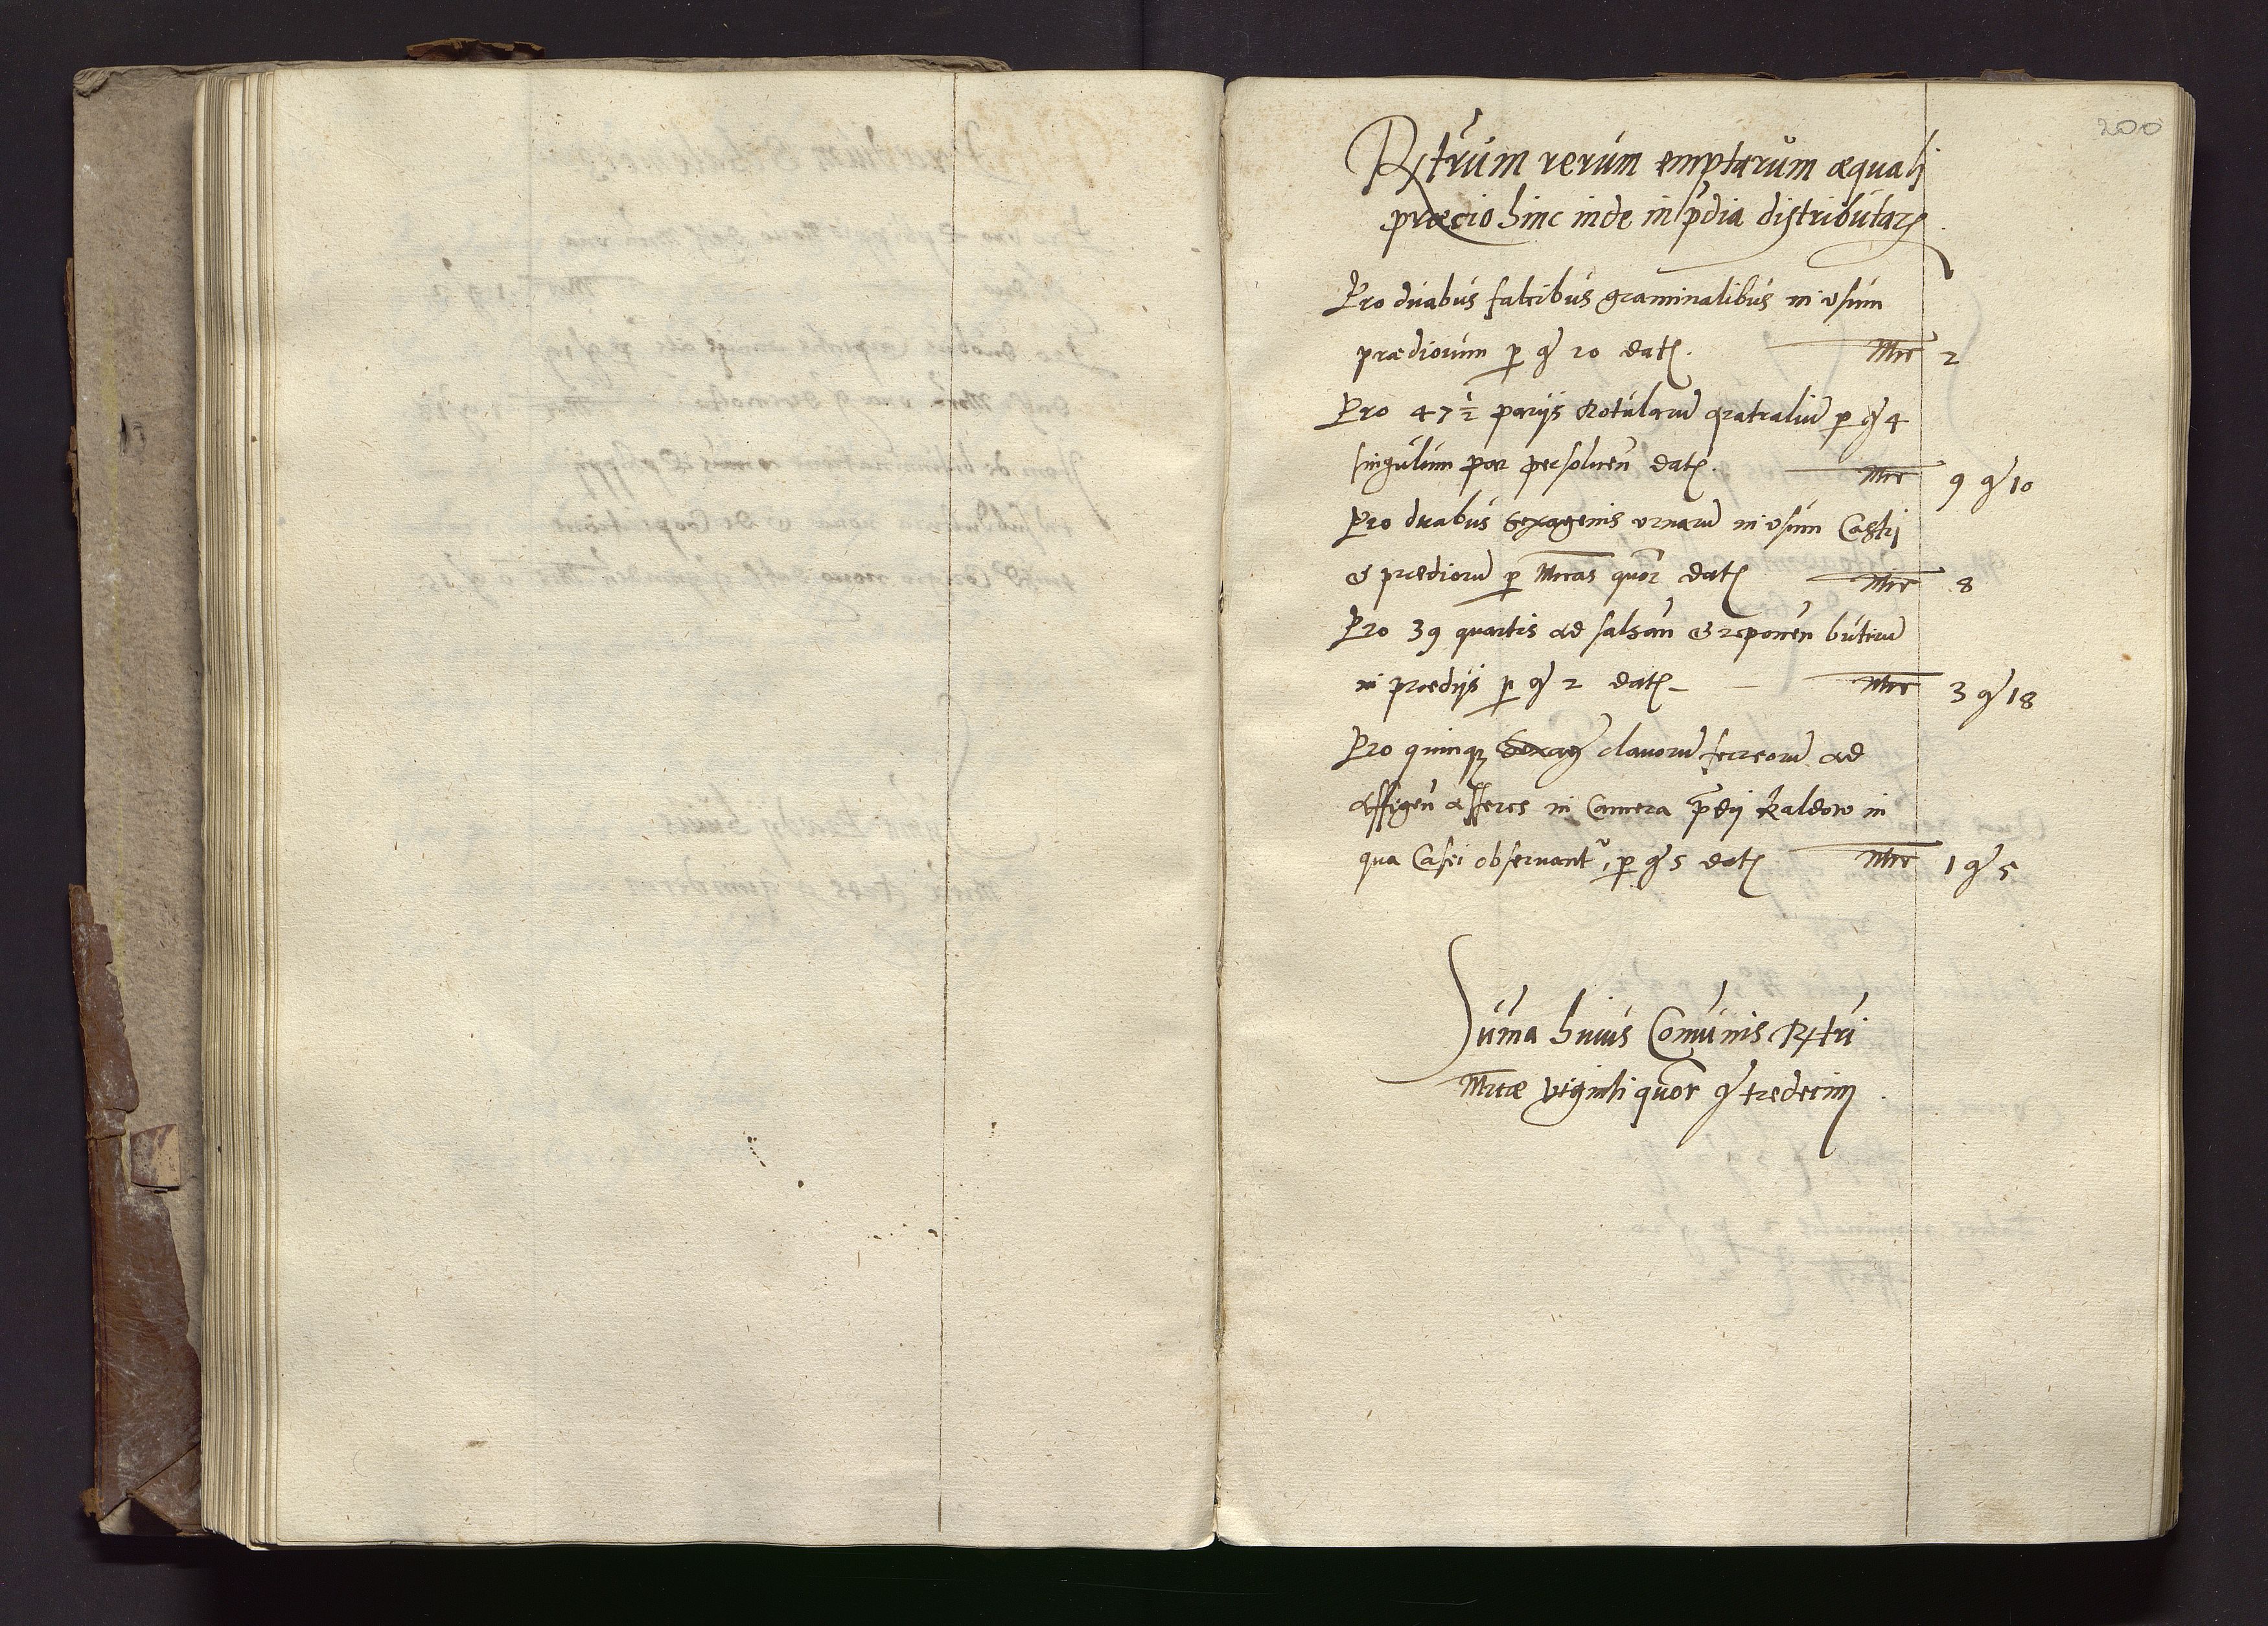 200
Rtrum rerum emptarum æquali
præcio hinc inde in p̄dia distributarꝫ
Pro duabus falcibus graminalibus in vsum
prædiorum p gr 20 datꝫ. Mrc 2
Pro 47 ½ parijs Rotularū aratraliū p gr 4
singulum par persoluen̄ datꝫ. Mrc 9 gr 10
Pro duabus Sexagenis vrnarū in vsum Castri
& prædiorū p Mrcas quor datꝫ Mrc 8
Pro 39 quartis ad salsan̄ & reponen̄ butirū
in prædijs p gr 2 datꝫ Mrc 3 gr 18
Pro quinqꝫ Sexag clauorū ferreorū ad
affigen̄ asseres in Camera p̄dij Kaldow in
qua Casei obseruantr, p gr 5 datꝫ Mrc 1 gr 5
Sum̄a huius Com̄unis Rtri
Mrcæ viginti quor gr tredecim